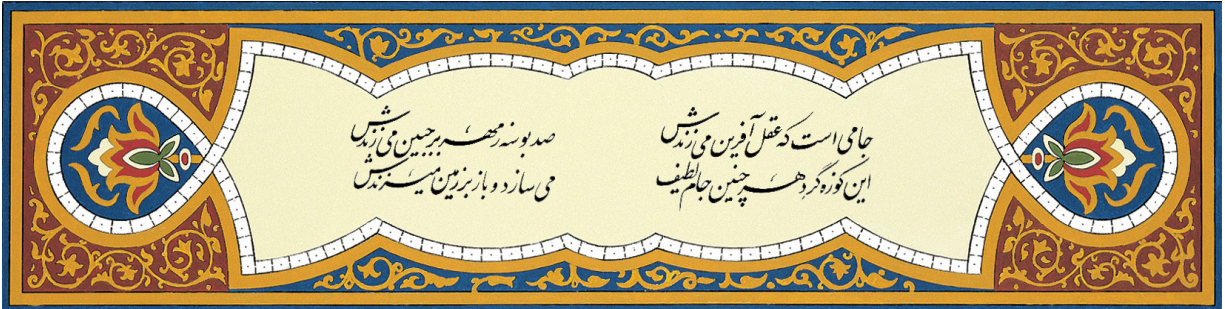 جامی است که عقل آفرین می زندش صد بوسه ز مهر بر جبین می زندش
این کوزه گر دهر چنین جام لطیف می سازد و باز بر زمین میزندش